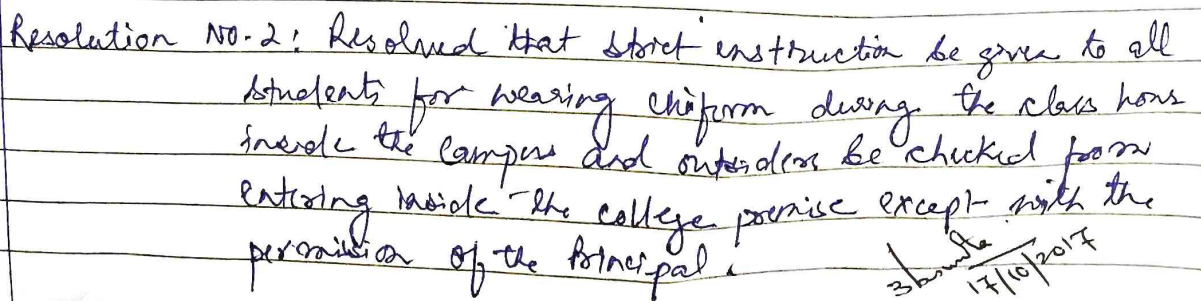 Resolution No. 2: Resolved that strict instruction be given to all
students for wearing uniform during the class hours
inside the campus and outsiders be checked from
entering inside the college premise except with the
permission of the Principal.
17/10/2017